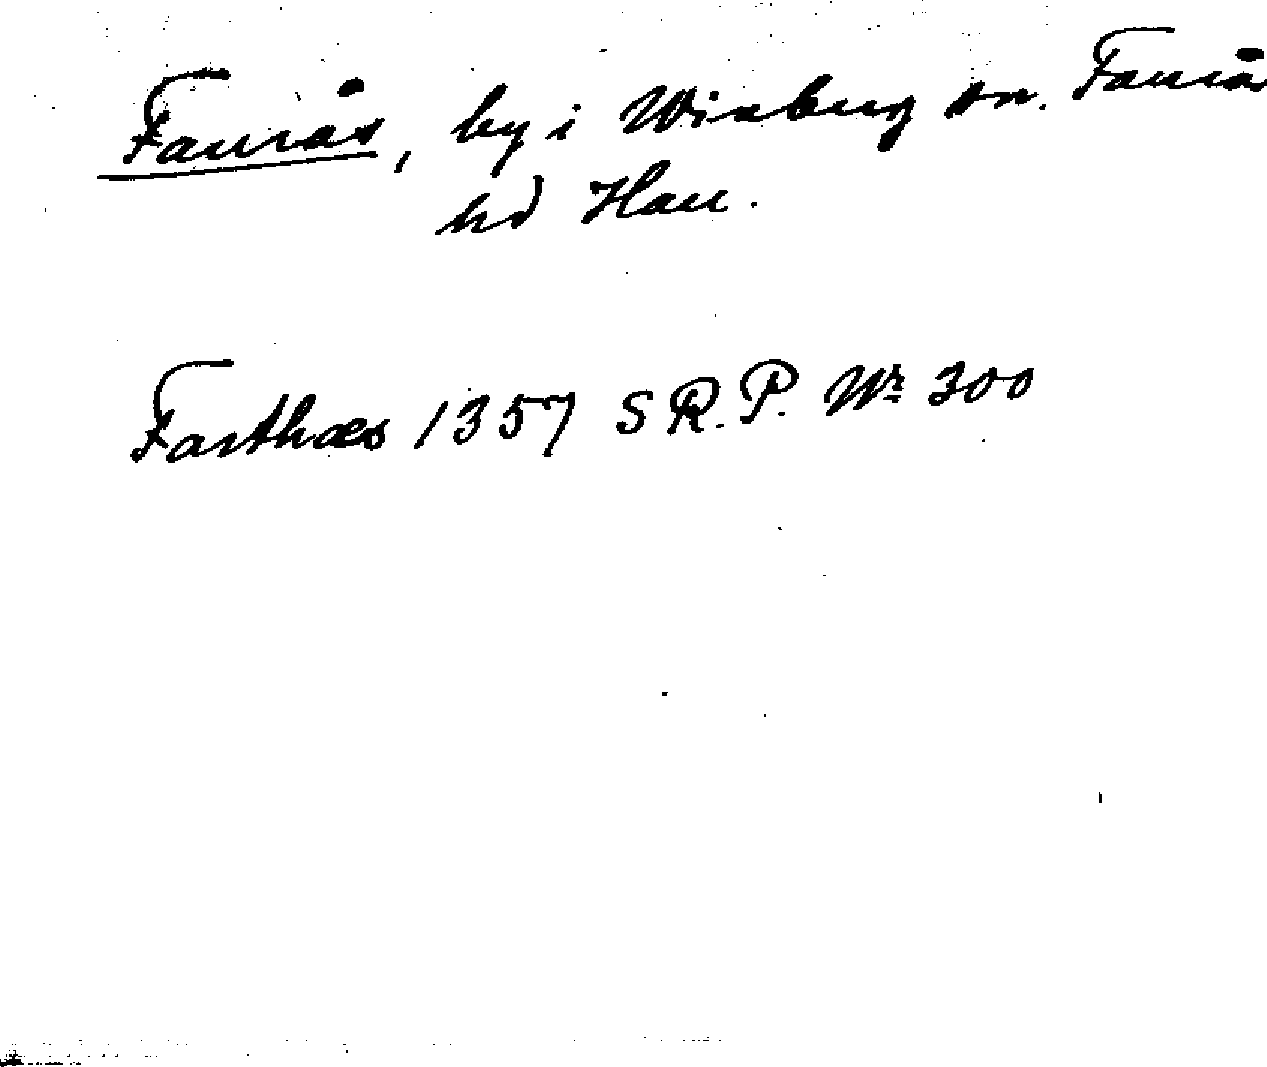 Faurås, by i Winberg sn. Faurås
hd Hall.
Farthæs 1357 S R. P. Nr 300